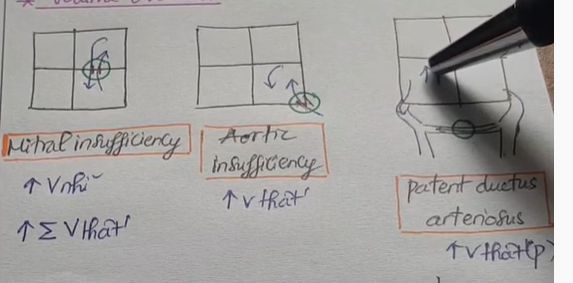 Mitral insufficiency
↑ Vnhĩ
↑ Σ Vthất
Aortic
insufficiency
↑ Vthất
patent ductus
arteriosus
↑Vthất(p)